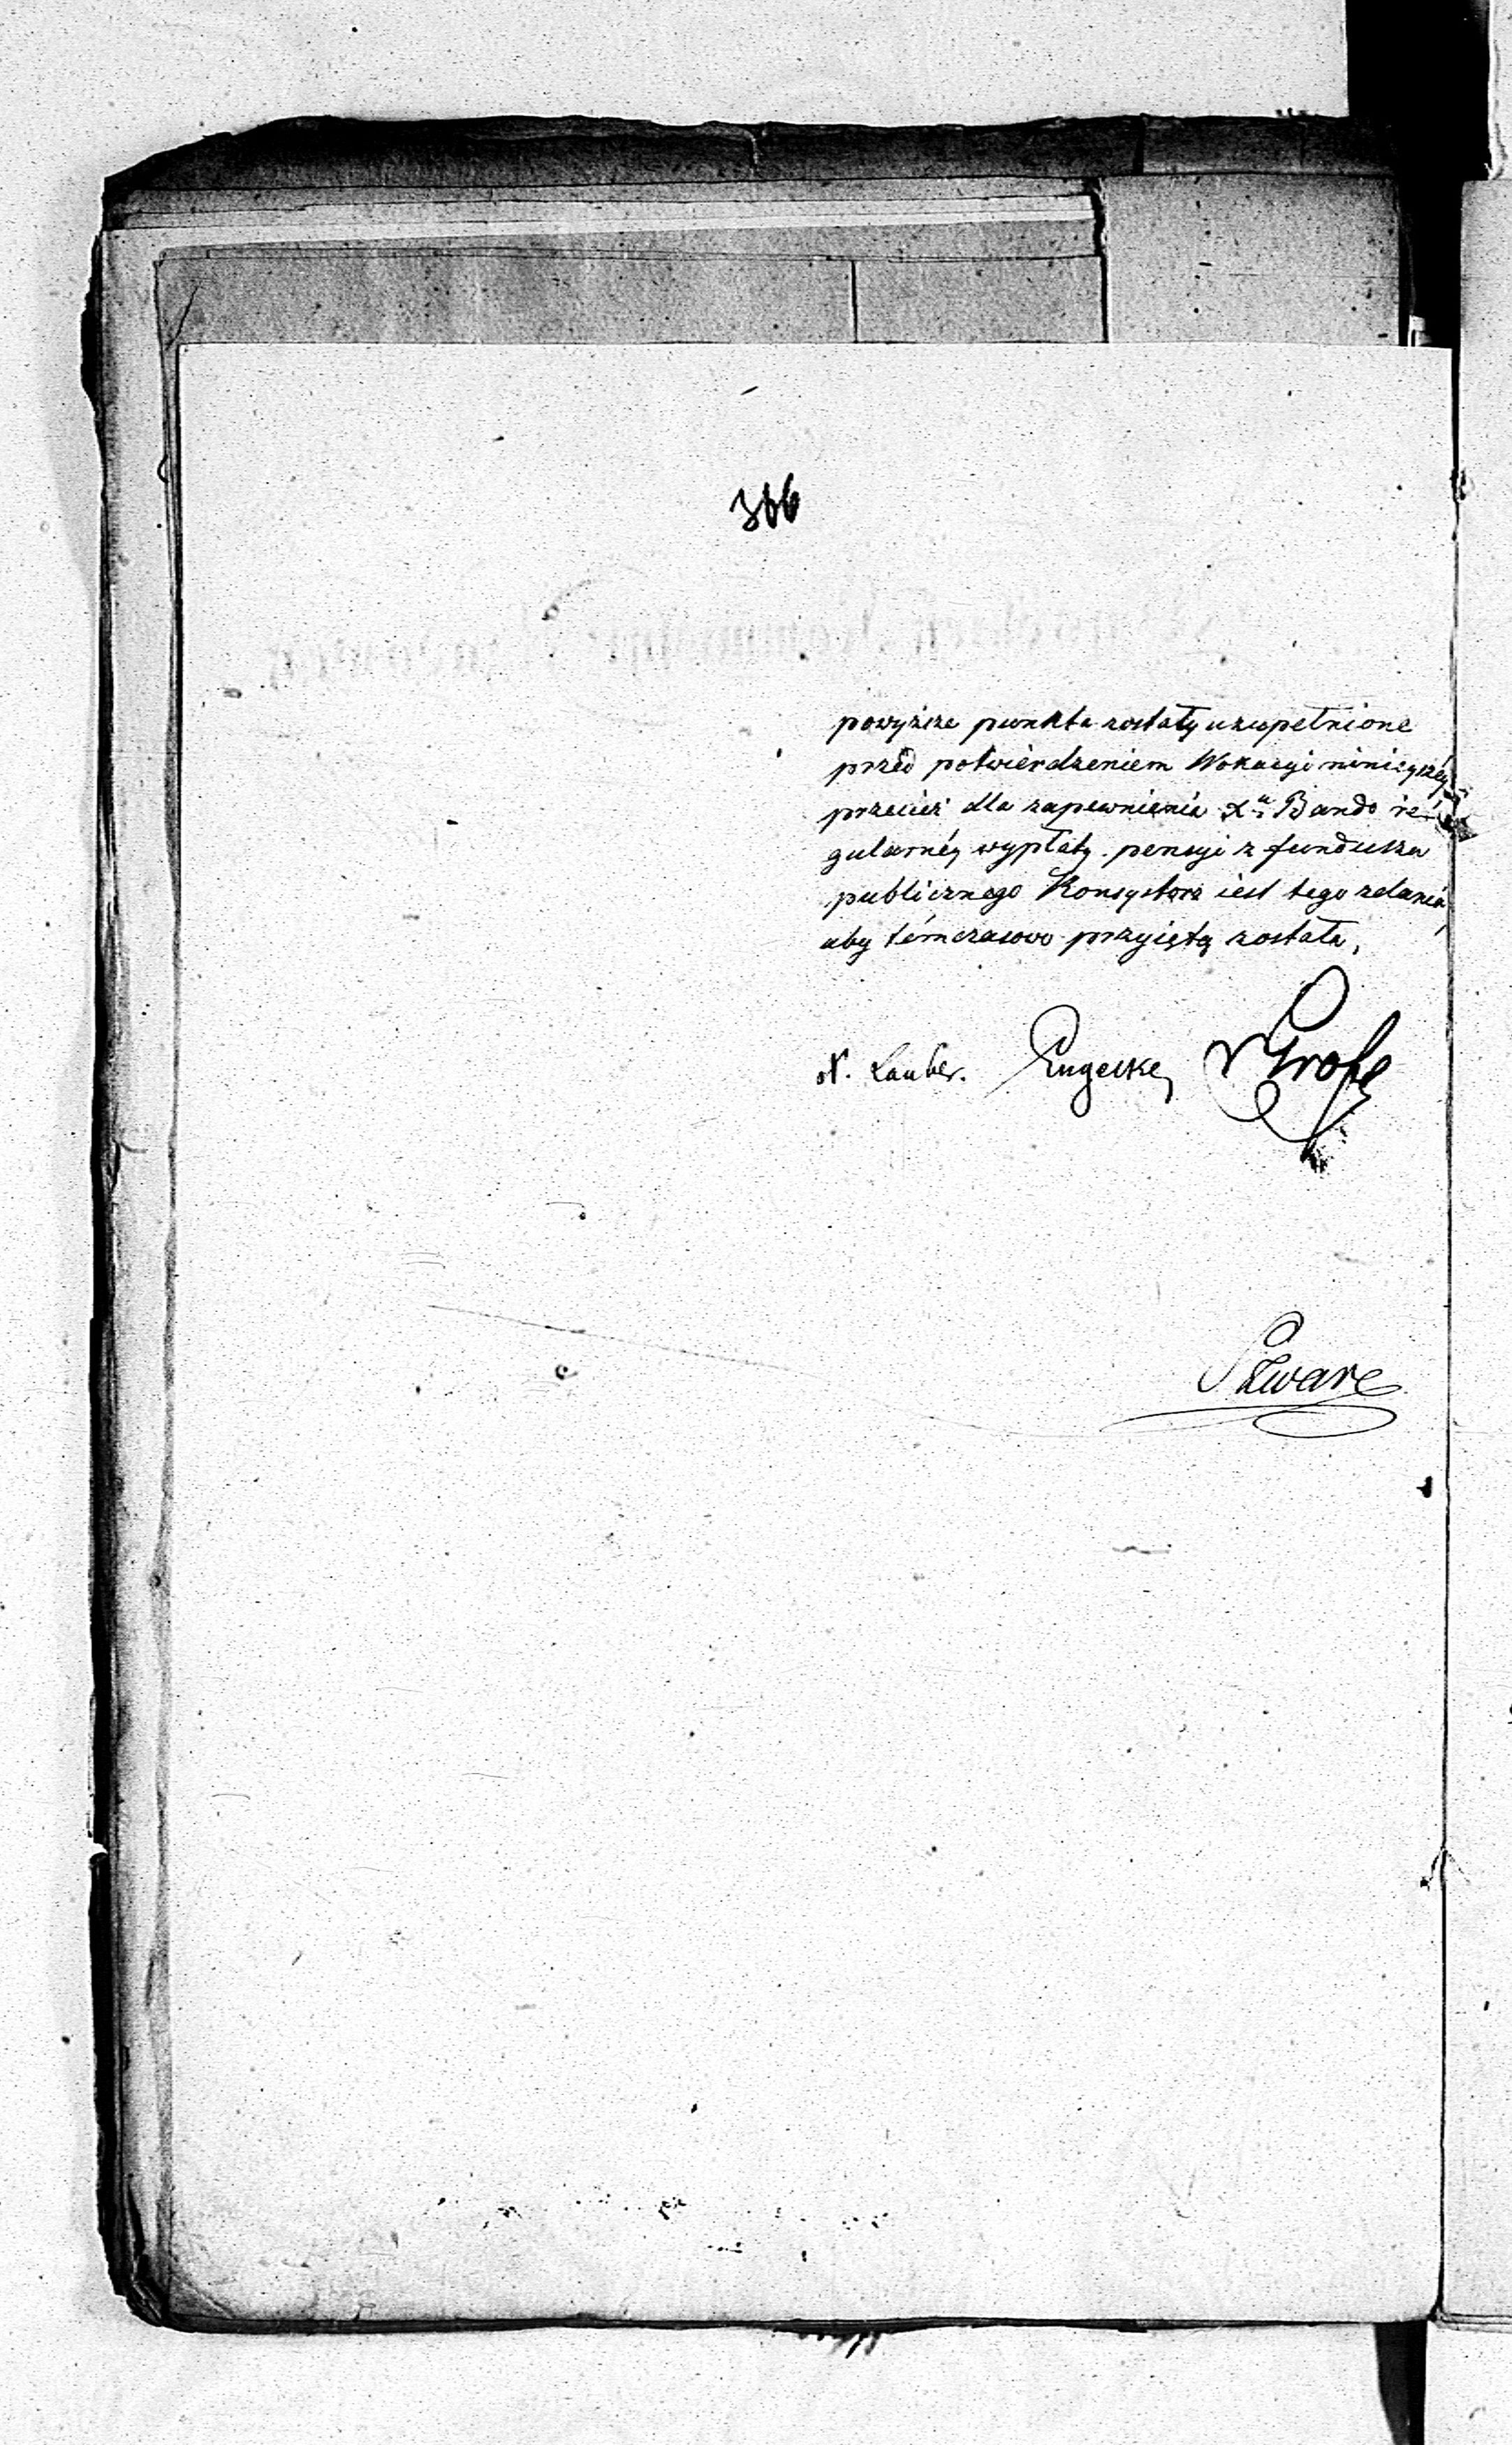 366
powyższe punkta zostały uzupełnione
przed potwierdzeniem Wokacyi ninieyszéy
przecież dla zapewnienia Xu Bando re-
gularnéy wypłaty pensyi z funduszu
publicznego Konsystorz iest tego zdania,
aby témczasowo przyiętą została,
N. Lauber.